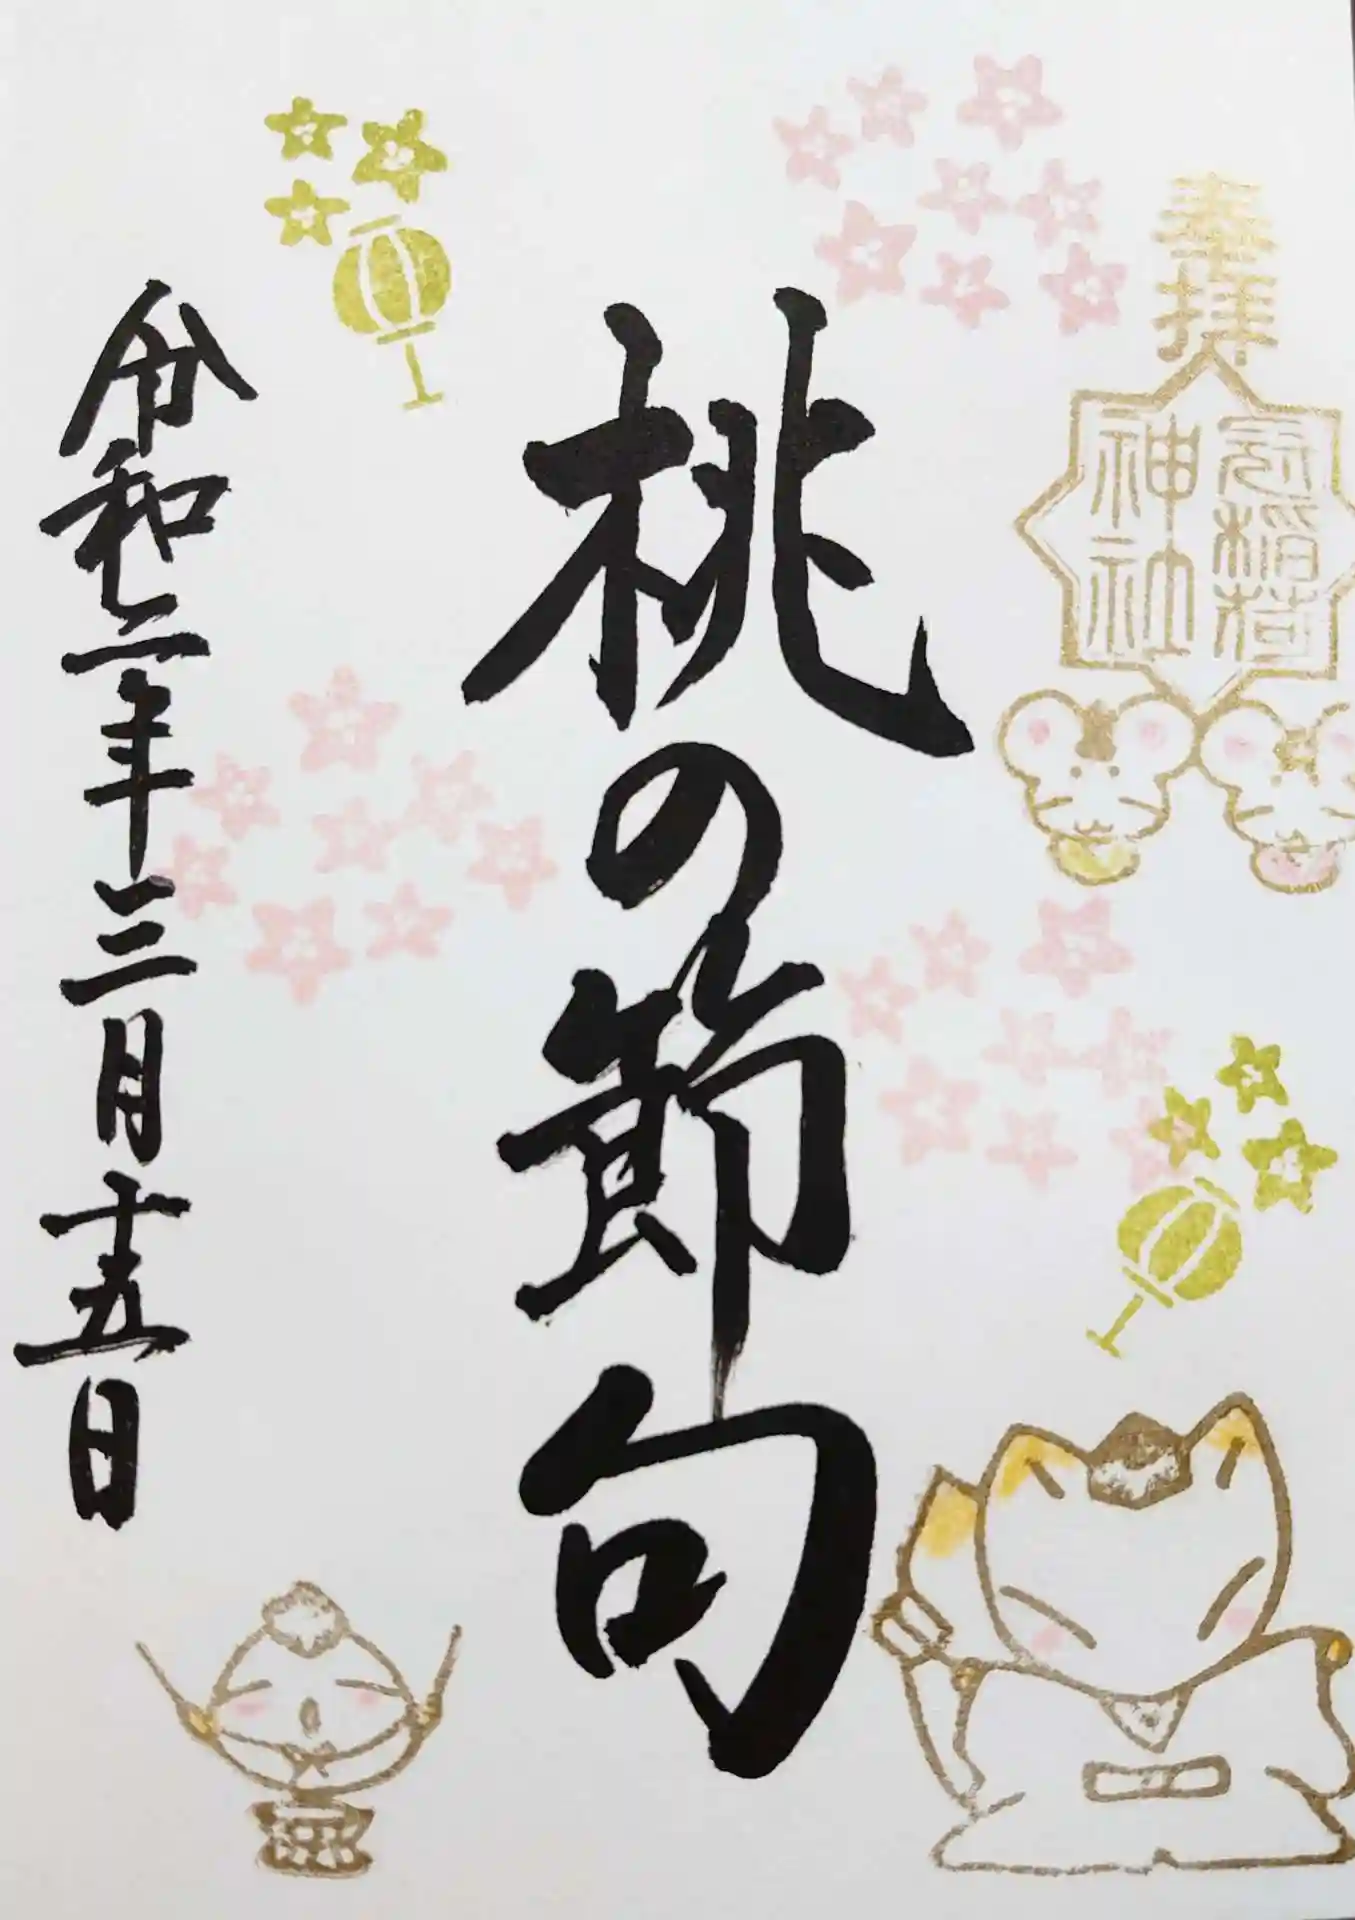 奉拝
冠稲荷
神社
桃の節句
令和二年三月十五日